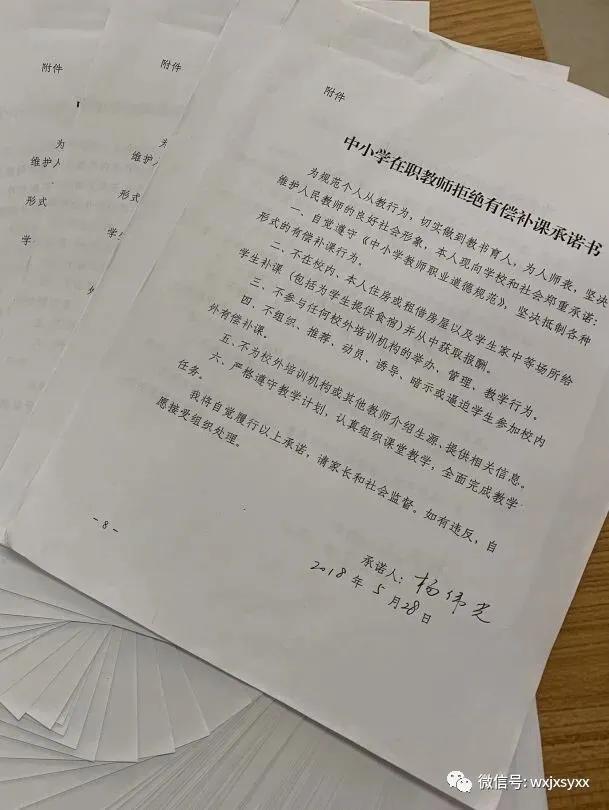 附件
附件
附件
为
维护人
形式
学
为
维护
形式
学
外
中小学在职教师拒绝有偿补课承诺书
为规范个人从教行为，切实做到教书育人，为人师表，坚决
维护人民教师的良好社会形象，本人现向学校和社会郑重承诺：
一、自觉遵守《中小学教师职业道德规范》，坚决抵制各种
形式的有偿补课行为。
二、不在校内、本人住房或租借房屋以及学生家中等场所给
学生补课（包括为学生提供食宿)并从中获取报酬。
三、不参与任何校外培训机构的举办、管理、教学行为。
四、不组织、推荐、动员、诱导、暗示或逼迫学生参加校内
外有偿补课。
五、不为校外培训机构或其他教师介绍生源、提供相关信息。
六、严格遵守教学计划，认真组织课堂教学，全面完成教学
任务。
我将自觉履行以上承诺，请家长和社会监督。如有违反，自
愿接受组织处理。
承诺人：杨伟光
2018年5月28日
-8-
微信号: wxjxsyxx